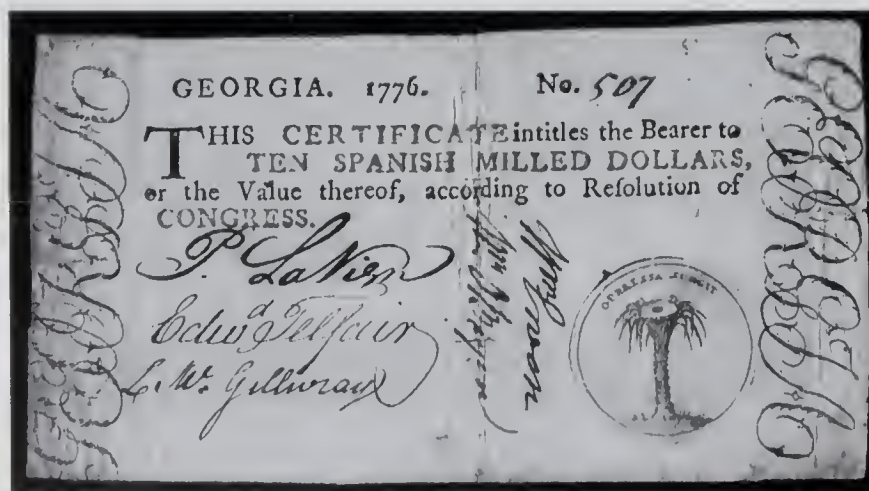 GEORGIA. 1776. No. 507
THIS CERTIFICATE intitles the Bearer to
TEN SPANISH MILLED DOLLARS,
or the Value thereof, according to Reſolution of
CONGRESS.
P. LaVien
Edwd Telfair
L. Mc. Gillivray
OPPRESSA SURGIT
GEORGIA
GEORGIA